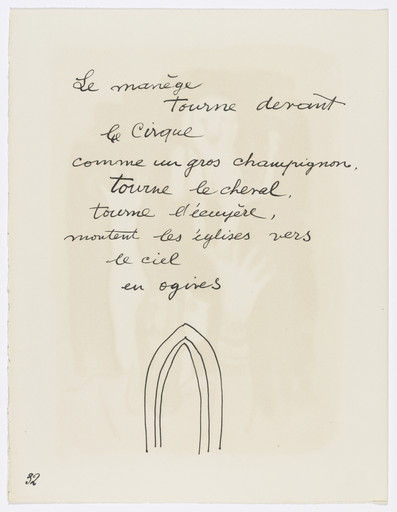 Le manège
tourne devant
le Cirque
comme un gros champignon,
tourne le cheval,
tourne l'écuyère,
montent les églises vers
le ciel
en ogives
32